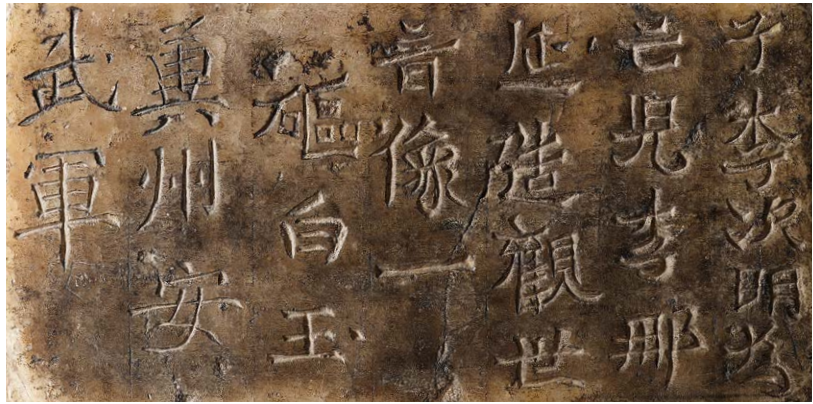 子李次明為
亡兒李那
延造觀世
音像一
軀白玉
冀州安
武軍